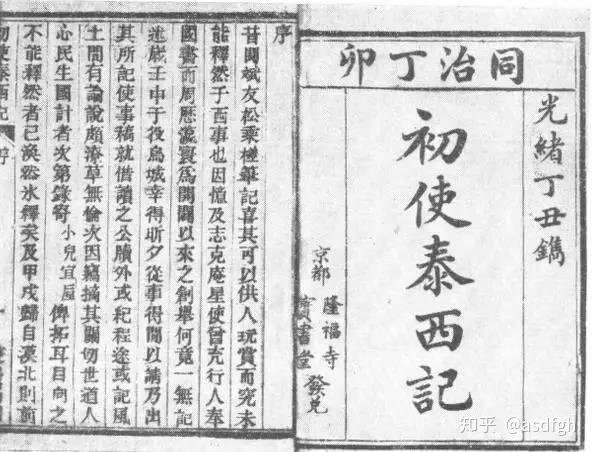 同治丁卯
光緒丁丑鐫
初使泰西記
京都
隆福寺
寶書堂
發兌
序
昔閱斌友松乘槎筆記喜其可以供人玩賞而究未
能釋然于西事也因憶及志克庵星使曾充行人奉
國書而周歷瀛寰爲開闢以來之創舉何竟一無記
述歲壬申于役烏城幸得昕夕從事得閒以請乃出
其所記使事稿就借讀之公牘外或紀程途或記風
土間有論說頗潦草無倫次因竊摘其關切世道人
心民生國計者次第錄寄小兒宜垕俾拓耳目向之
不能釋然者已渙然冰釋矣及甲戌歸自漠北則前
初使泰西記 序 一
知乎 @asdfgh